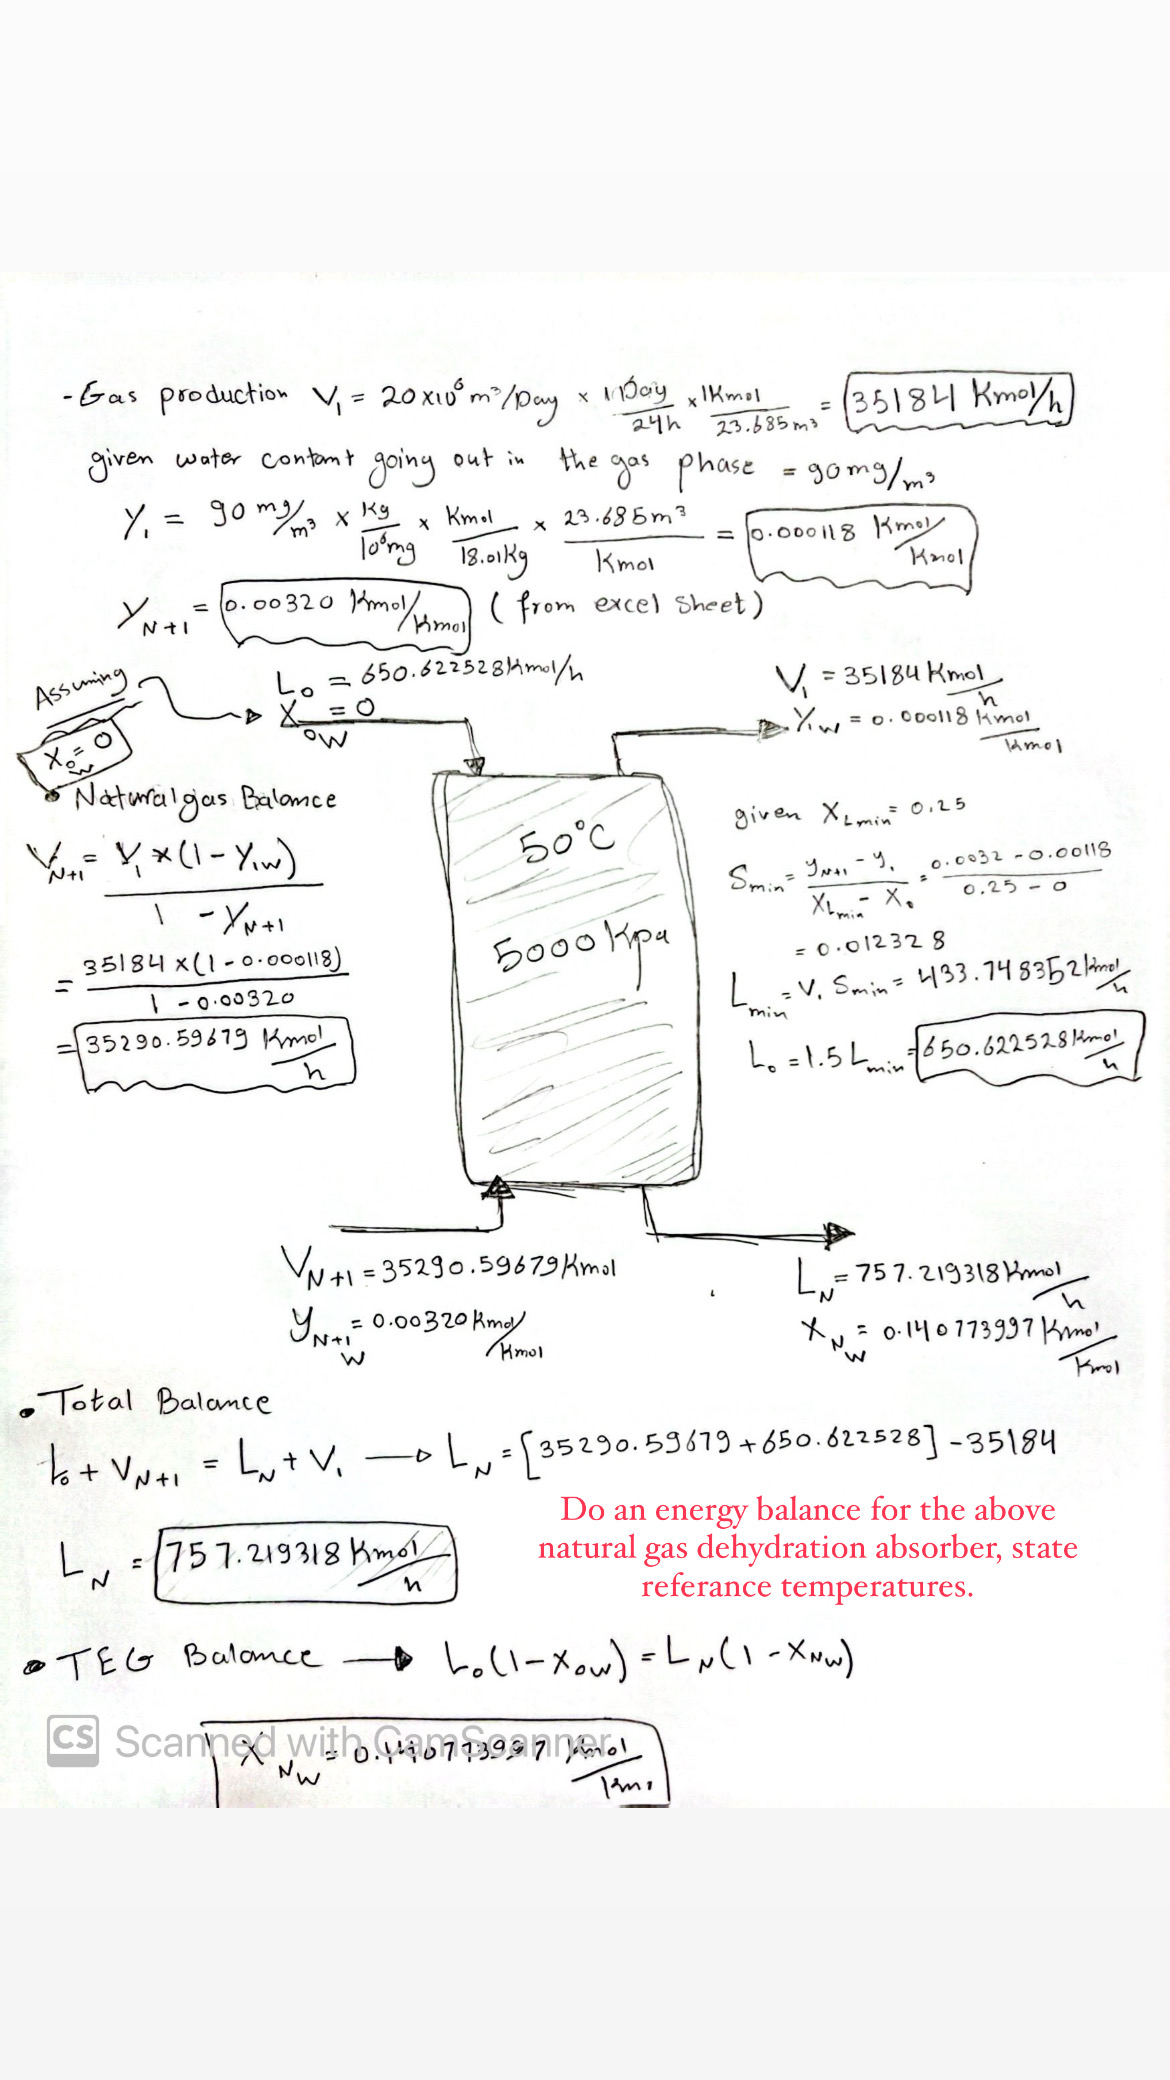 - Gas production V₁ = 20x10⁶ m³/Day x 1Day/24h x 1Kmol/23.685m³ = 35184 Kmol/h
given water contant going out in the gas phase = 90mg/m³
Y₁ = 90 mg/m³ x Kg/10⁶mg x Kmol/18.01Kg x 23.685m³/Kmol = 0.000118 Kmol/Kmol
Y_N+1 = 0.00320 Kmol/Kmol ( from excel sheet )
Assuming
X_oW = 0
L₀ = 650.622528Kmol/h
X_oW = 0
V₁ = 35184 Kmol/h
Y₁W = 0.000118 Kmol/Kmol
• Natural gas Balance
V_N+1 = V₁ x (1 - Y₁W) / 1 - Y_N+1
= 35184 x (1 - 0.000118) / 1 - 0.00320
= 35290.59679 Kmol/h
50°C
5000 Kpa
given X_Lmin = 0.25
S_min = y_N+1 - y₁ / X_Lmin - X₀ = 0.0032 - 0.00118 / 0.25 - 0
= 0.012328
L_min = V₁ S_min = 433.748352 Kmol/h
L₀ = 1.5 L_min = 650.622528 Kmol/h
V_N+1 = 35290.59679 Kmol
y_N+1 W = 0.00320 Kmol/Kmol
L_N = 757.219318 Kmol/h
X_NW = 0.140773997 Kmol/Kmol
• Total Balance
L₀ + V_N+1 = L_N + V₁ → L_N = [35290.59679 + 650.622528] - 35184
L_N = 757.219318 Kmol/h
Do an energy balance for the above
natural gas dehydration absorber, state
referance temperatures.
• TEG Balance → L₀(1 - X_oW) = L_N(1 - X_NW)
X_NW = 0.140773997 Kmol/Kmo
CS Scanned with CamScanner